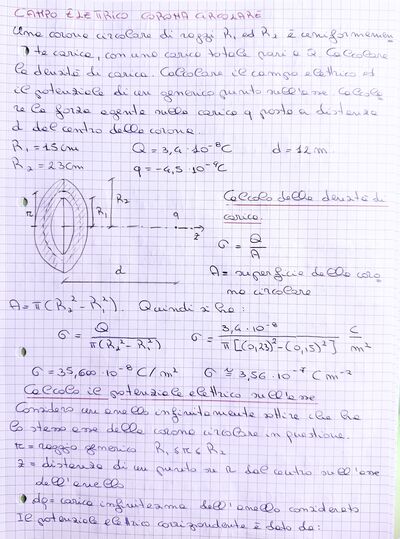 CAMPO ELETTRICO CORONA CIRCOLARE
Una corona circolare di raggi R₁ ed R₂ è uniformemen
te carica, con una carica totale pari a Q Calcolare
la densità di carica. Calcolare il campo elettrico ed
il potenziale di un generico punto sull'asse Calcola
re la forza agente sulla carica q posta a distanza
d dal centro della corona.
R₁ = 15cm Q = 3,4·10⁻⁸C d = 12m
R₂ = 23cm q = -4,5·10⁻⁹C
R₂
R₁
r
q
z
d
Calcolo della densità di
carica.
σ = Q/A
A = superficie della coro
na circolare
A = π(R₂² - R₁²). Quindi si ha:
σ = Q/π(R₂² - R₁²) σ = 3,4·10⁻⁸/π[(0,23)² - (0,15)²] C/m²
σ = 35,600·10⁻⁸ C/m² σ ≅ 3,56·10⁻⁷ C m⁻²
Calcolo il potenziale elettrico sull'asse
Considero un anello infinitamente sottile che ha
lo stesso asse della corona circolare in questione.
r = raggio generico R₁ ≤ r ≤ R₂
z = distanza di un punto su dal centro sull'asse
dell'anello
dq = carica infinitesima dell'anello considerato
Il potenziale elettrico corrispondente è dato da: